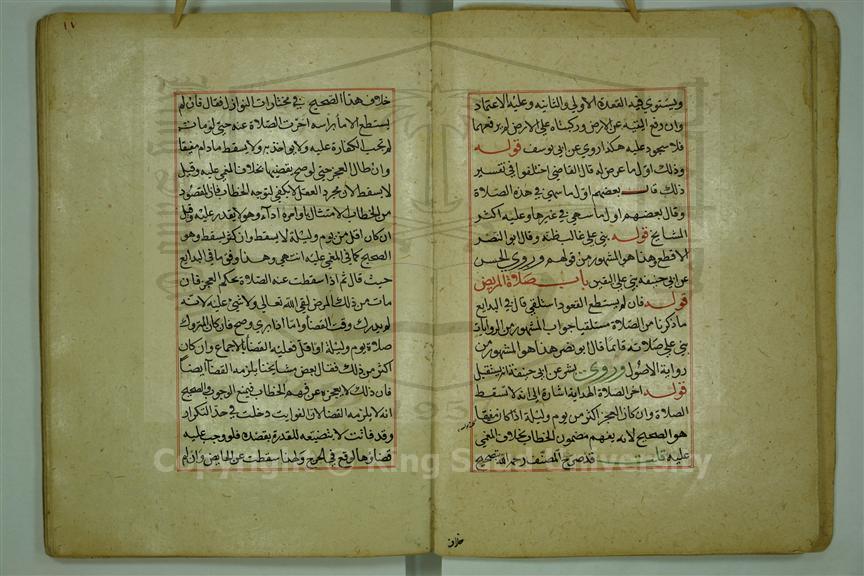 ويستوي فيه القعدة الاولى والثانية وعليه الاعتماد
وان رفع اليتيه عن الارض وركبتاه على الارض لم يرفعهما
فلا سجود عليه هكذا روي عن ابي يوسف قوله
وذلك اول ما عرض له قال القاضي اختلفوا في تفسير
ذلك قال بعضهم اول ما سهى في هذه الصلاة
وقال بعضهم اول ما سهى في غيرها وعليه اكثر
المشايخ قوله بنى على غالب ظنه وقال ابو النصر
الاقطع وهذا هو المشهور من قولهم وروي الحسن
عن ابي حنيفه بنى على اليقين باب صلاة المريض
قوله فان لم يستطع القعود استلقى قال في البدايع
ما ذكرنا من الصلاة مستلقيا جواب المشهور من الروايات
بنى على صلاته قائما قال ابو نصر هذا هو المشهور من
رواية الاصول وروى بشر عن ابي حنيفة انه يستقبل
قوله اخر الصلاة الهداية اشارة الى انه لا تسقط
الصلاة وان كان العجز اكثر من يوم وليلة اذا كان مفيقا
هو الصحيح لانه يفهم مضمون الخطاب بخلاف المغمى
عليه قلت قد صرح المصنف رحمه الله بتصحيح
خلاف
١١
خلاف هذا الصحيح في مختارات النوازل فقال فان لم
يستطع الايما براسه اخرت الصلاة عنه حتى لو مات
لم تجب الكفارة عليه ولا يواخذ به ولا يسقط ما دام مفيقا
وان طال العجز حتى لو صح يقضيها بخلاف المغمى عليه وقيل
لا يسقط لان مجرد العقل لا يكفي لتوجه الخطاب فان المقصود
من الخطاب الامتثال باوامره اداء وهو لا يقدر عليه وقيل
ان كان اقل من يوم وليلة لا يسقط وان كثر يسقط وهو
الصحيح كما في المغمى عليه انتهى وهذا وفق ما في البدايع
حيث قال ثم اذا سقطت عنه الصلاة بحكم العجز فان
مات من ذلك المرض لقي الله تعالى ولا شي عليه لانه
لم يدرك وقت القضا واما اذا برى وصح فان كان المتروك
صلاة يوم وليلة او اقل فعليه القضا بالاجماع وان كان
اكثر من ذلك فقال بعض مشايخنا يلزمه القضا ايضا
فان ذلك لا يعجزه عن فهم الخطاب فيمنع الوجوب والصحيح
انه لا يلزمه القضا لان الفوايت دخلت في حد التكرار
وقد فاتت لا بتضييعه للقدرة بقصده فلو وجب عليه
قضاؤها لوقع في الحرج ولهذا سقطت عن الحايض وان لم
Copyright © King Saud University